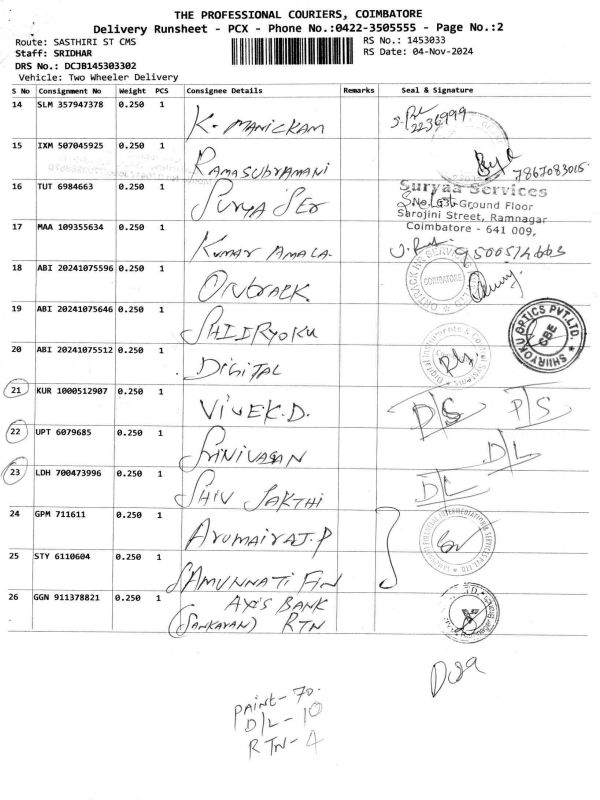 THE PROFESSIONAL COURIERS, COIMBATORE
Delivery Runsheet - PCX - Phone No.:0422-3505555 - Page No.:2
Route: SASTHIRI ST CMS
RS No.: 1453033
Staff: SRIDHAR
RS Date: 04-Nov-2024
DRS No.: DCJB145303302
Vehicle: Two Wheeler Delivery
S No Consignment No Weight PCS Consignee Details Remarks Seal & Signature
14 SLM 357947378 0.250 1 K. MANICKAM 2236999
15 IXM 507045925 0.250 1 RAMASUBRAMANI 7867083015
16 TUT 6984663 0.250 1 SURYA SER
Suryaa Services
S.No.63, Ground Floor
Sarojini Street, Ramnagar
Coimbatore - 641 009,
17 MAA 109355634 0.250 1 KUMAR AMALA.
18 ABI 20241075596 0.250 1 ONTRACK
COIMBATORE
19 ABI 20241075646 0.250 1 SHIIRYOKU
SHIIRYOKU OPTICS PVT.LTD.
CBE
20 ABI 20241075512 0.250 1 DIGITAL
21 KUR 1000512907 0.250 1 VIVEK.D. D/S P/S
22 UPT 6079685 0.250 1 SRINIVASAN D/L
23 LDH 700473996 0.250 1 SHIV SAKTHI D/L
24 GPM 711611 0.250 1 ARUMAIRAJ.P
25 STY 6110604 0.250 1 SAMUNNATI FIN
26 GGN 911378821 0.250 1 AXIS BANK
(SANKARAN) RTN
PAINT- 70.
D/L - 10
RTN- 4